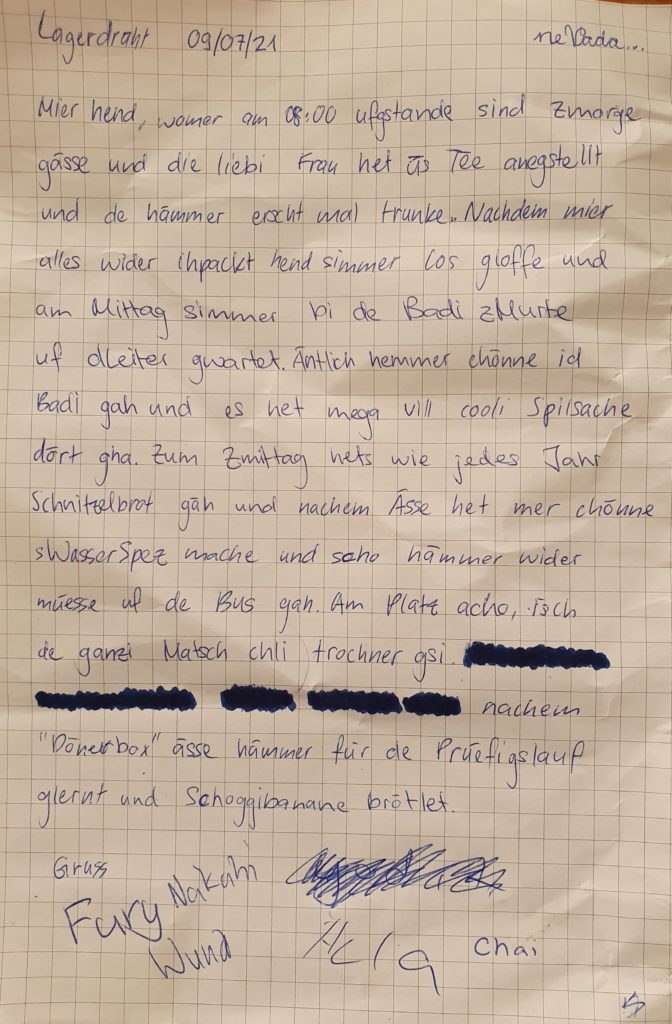 Lagerdraht 09/07/21 neVada...
Mier hend, womer am 08:00 ufgstande sind zmorge
gässe und die liebi Frau het üs Tee anegstellt
und de hämmer erscht mal trunke.. Nachdem mier
alles wider ihpackt hend simmer los gloffe und
am Mittag simmer bi de Badi zMurte
uf dLeiter gwartet. Äntlich hemmer chönne id
Badi gah und es het mega vill cooli Spilsache
dört gha. Zum Zmittag hets wie jedes Jahr
Schnitzelbrot gäh und nachem Ässe het mer chönne
sWasserSpez mache und scho hämmer wider
müesse uf de Bus gah. Am Platz acho, isch
de ganzi Matsch chli trochner gsi.
nachem
"Dönerbox" ässe hämmer für de Prüefigslauf
glernt und Schoggibanane brötlet.
Gruss
Nakahi
Fury
Wuna
Chai